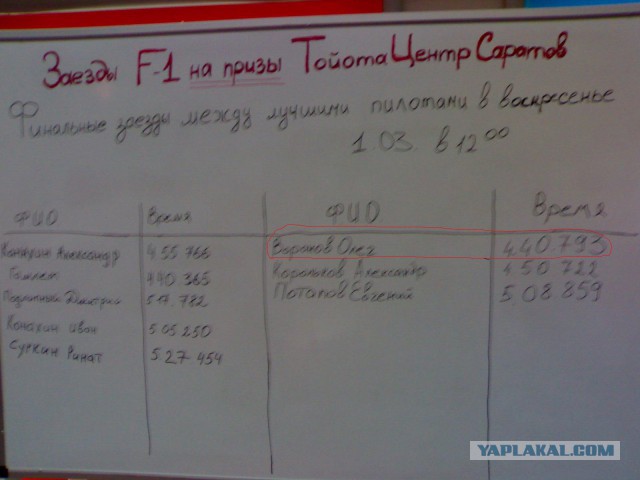 Заезды F-1 на призы Тойота Центр Саратов
Финальные заезды между лучшими пилотами в воскресенье
1.03. в 12 00
ФИО Время ФИО Время
Конакин Александр 4 55 766 Воронов Олег 4.40.793
Гамлет 4 40 365 Корольков Александр 4 50 722
Дмитрий 5 17. 782 Потапов Евгений 5 08 859
Конакин Иван 5.05.250
Суркин Ринат 5.27 454
YAPLAKAL.COM